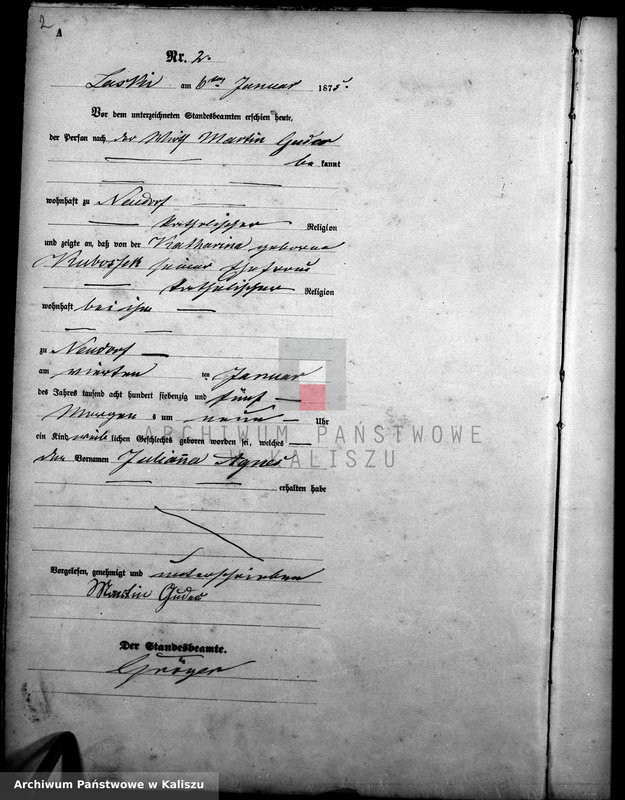 2
A
Nr. 2.
Laski am 6ten Januar 1875.
Vor dem unterzeichneten Standesbeamten erschien heute,
der Person nach der Wirth Martin Guder
be kannt
wohnhaft zu Neudorf
katholischer Religion
und zeigte an, daß von der Katharina geborne
Kubossek seiner Ehefrau
katholischer Religion
wohnhaft bei ihm
zu Neudorf
am vierten ten Januar
des Jahres tausend acht hundert siebenzig und fünf
Morgens um neun Uhr
ein Kind weiblichen Geschlechts geboren worden sei, welches
den Vornamen Julianna Agnes
erhalten habe
Vorgelesen, genehmigt und unterschrieben
Martin Guder
Der Standesbeamte.
Gröger
ARCHIWUM PAŃSTWOWE
W KALISZU
Archiwum Państwowe w Kaliszu